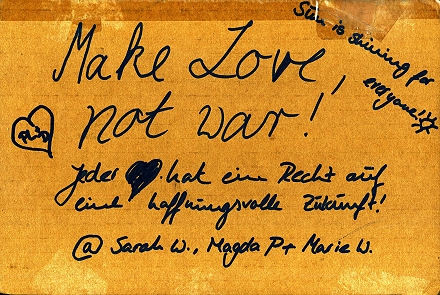 Sun is shining for
everyone!
Make Love,
not war!
Jeder ♥ hat ein Recht auf
eine hoffnungsvolle Zukunft!
@ Sarah W., Magda P + Marie W.